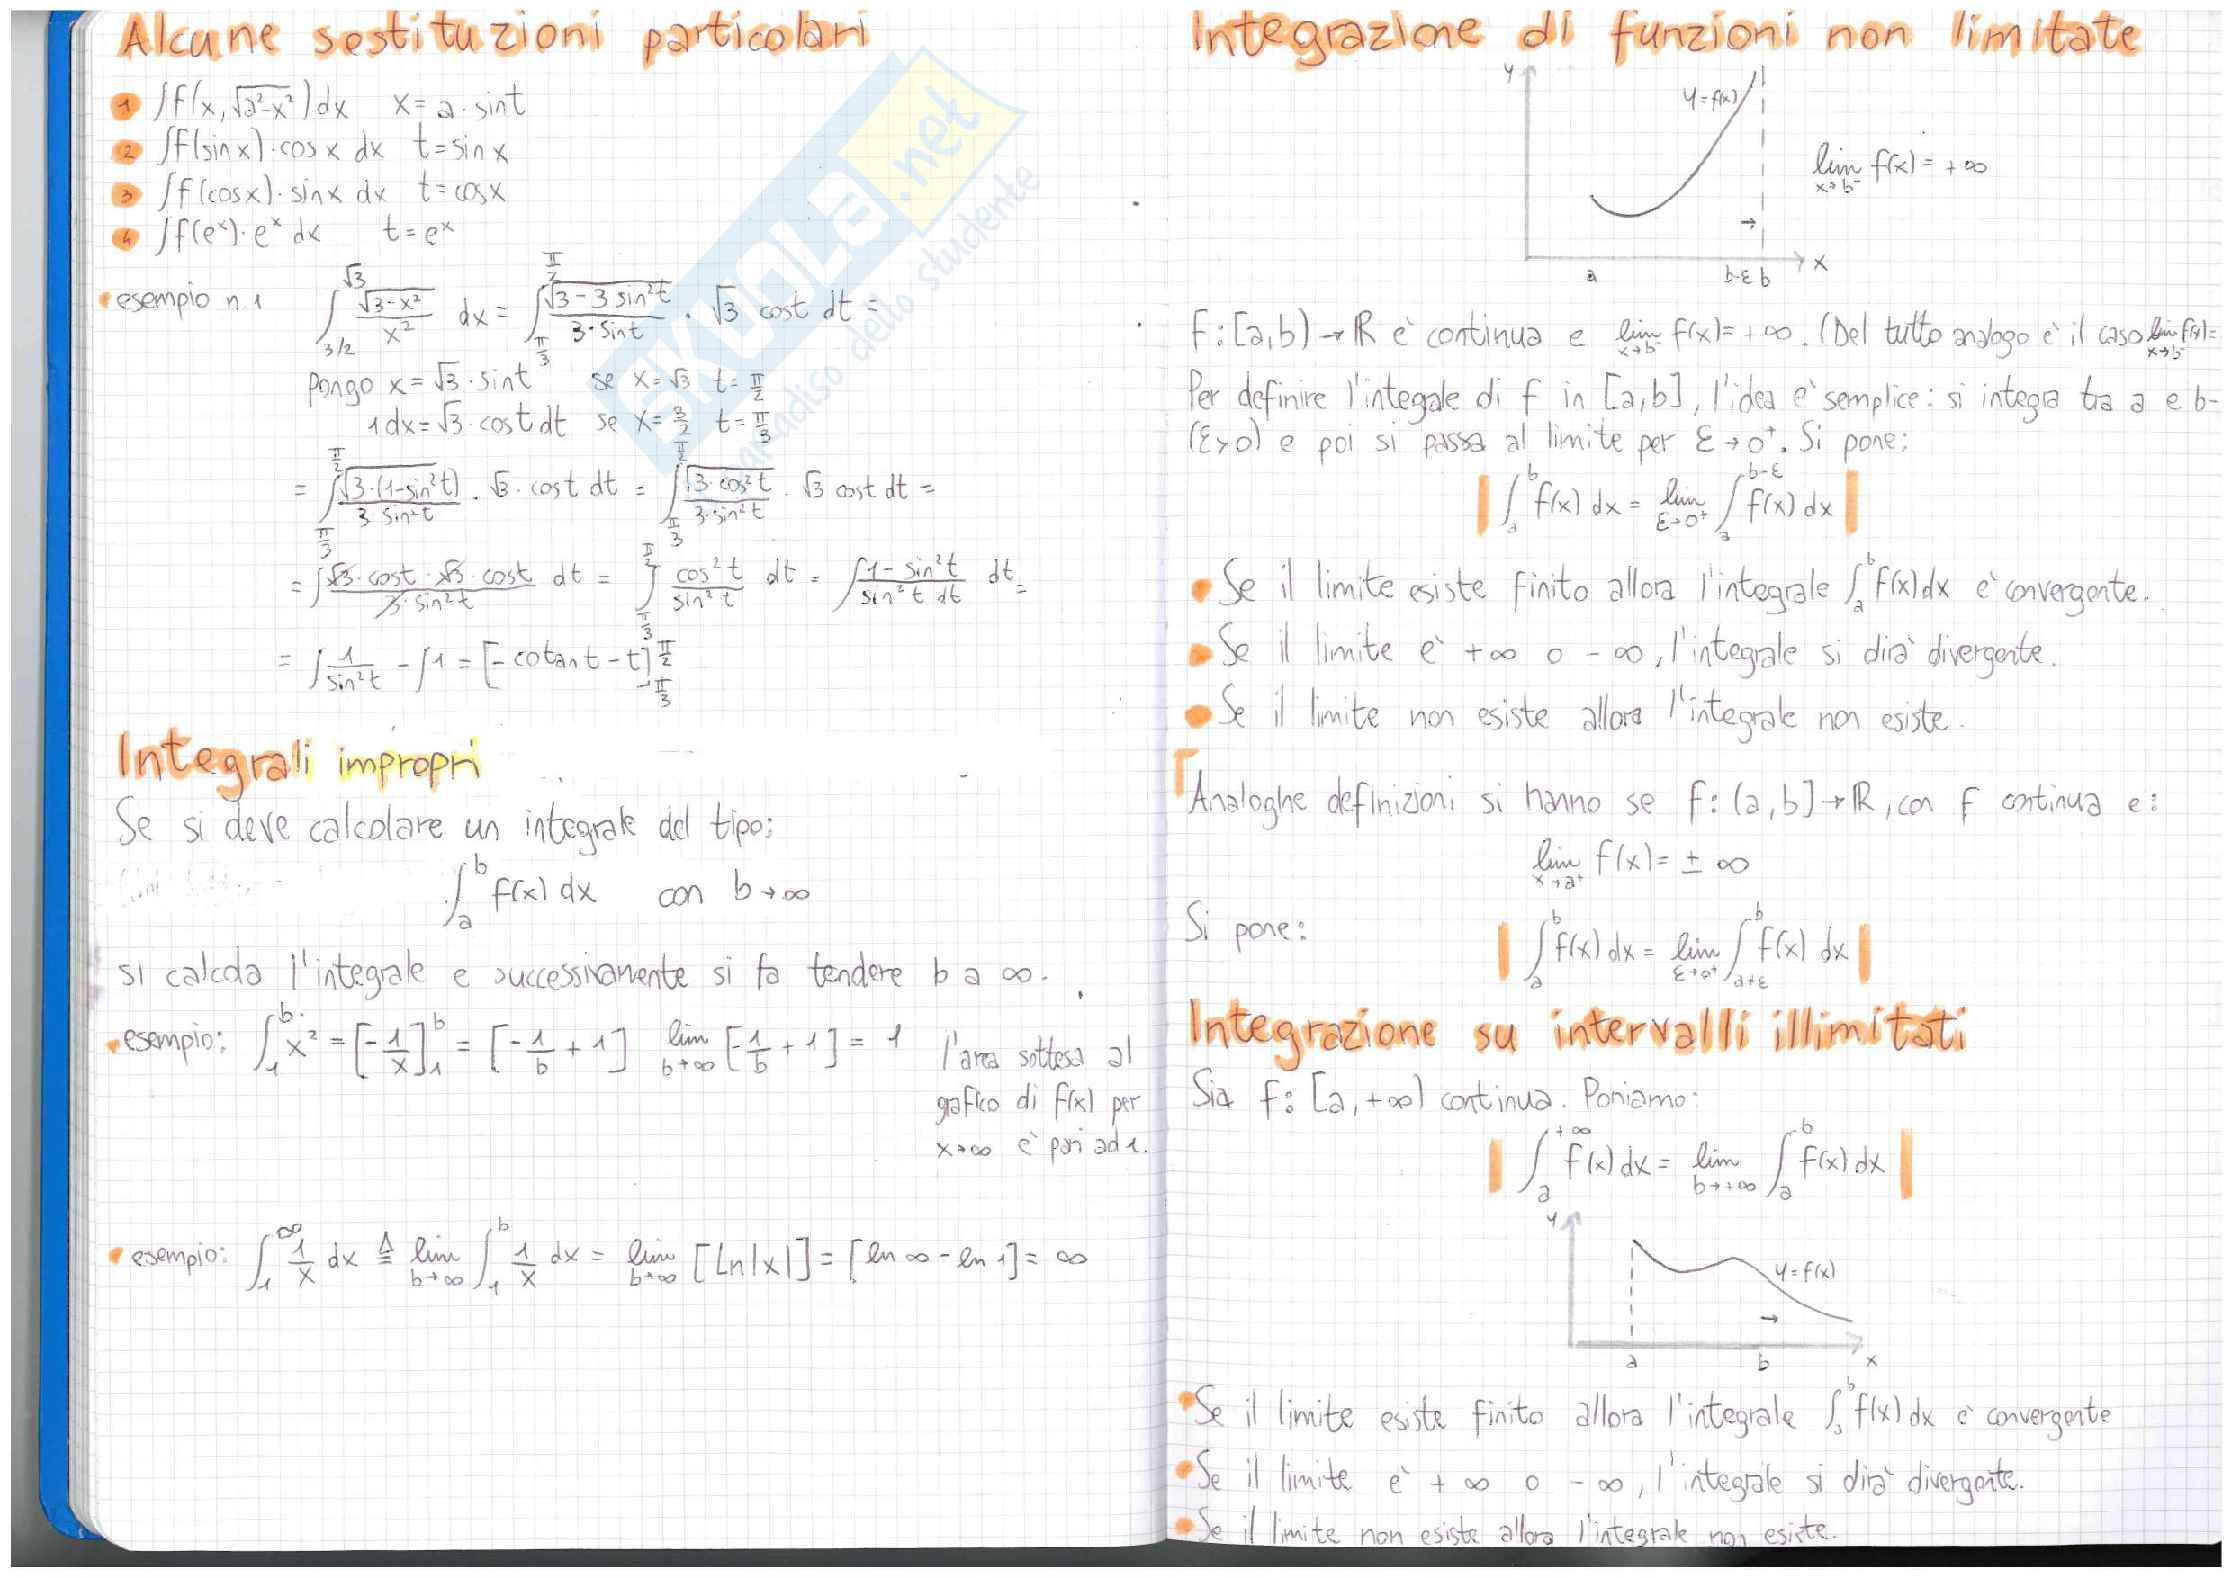 Alcune sestituzioni particolari
1 ∫f(x, √a²-x²) dx x = a · sint
2 ∫f(sinx) · cosx dx t = sinx
3 ∫f(cosx) · sinx dx t = cosx
4 ∫f(eˣ) · eˣ dx t = eˣ
esempio n.1 ∫_{3/2}^{√3} √3-x² / x² dx = ∫_{π/3}^{π/2} √3-3sin²t / 3·sint · √3 cost dt =
Pongo x = √3 · sint se x = √3 t = π/2
1dx = √3 · cost dt se x = 3/2 t = π/3
= ∫_{π/3}^{π/2} √3·(1-sin²t) / 3 sin²t · √3 · cost dt = ∫_{π/3}^{π/2} √3·cos²t / 3·sin²t · √3 cost dt =
= ∫ √3·cost · √3 · cost / 3·sin²t dt = ∫_{π/3}^{π/2} cos²t / sin²t dt = ∫ 1-sin²t / sin²t dt dt =
= ∫ 1/sin²t - ∫1 = [-cotant - t]_{π/3}^{π/2}
Integrali impropri
Se si deve calcolare un integrale del tipo:
∫_a^b f(x) dx con b→∞
si calcola l'integrale e successivamente si fa tendere b a ∞.
esempio: ∫_1^b x² = [-1/x]_1^b = [-1/b + 1] lim b→∞ [-1/b + 1] = 1 l'area sottesa al
grafico di f(x) per
x→∞ è pari ad 1.
esempio: ∫_1^∞ 1/x dx ≜ lim b→∞ ∫_1^b 1/x dx = lim b→∞ [Ln|x|] = [ln∞ - ln1] = ∞
Integrazione di funzioni non limitate
y
y = f(x)
lim x→b⁻ f(x) = +∞
a b-ε b x
f: [a,b) → ℝ è continua e lim x→b⁻ f(x) = +∞. (Del tutto analogo è il caso lim x→b⁻ f(x) =
Per definire l'integale di f in [a,b], l'idea è semplice: si integra tra a e b-
(ε>0) e poi si passa al limite per ε→0⁺. Si pone:
∫_a^b f(x) dx = lim ε→0⁺ ∫_a^{b-ε} f(x) dx
Se il limite esiste finito allora l'integrale ∫_a^b f(x)dx è convergente.
Se il limite è +∞ o -∞, l'integrale si dirà divergente.
Se il limite non esiste allora l'integrale non esiste.
Analoghe definizioni si hanno se f: (a,b] → ℝ, con f continua e:
lim x→a⁺ f(x) = ± ∞
Si pone: ∫_a^b f(x) dx = lim ε→0⁺ ∫_{a+ε}^b f(x) dx
Integrazione su intervalli illimitati
Sia f: [a, +∞) continua. Poniamo:
∫_a^{+∞} f(x) dx = lim b→+∞ ∫_a^b f(x) dx
y
y = f(x)
a b x
Se il limite esiste finito allora l'integrale ∫_a^b f(x) dx è convergente
Se il limite è +∞ o -∞, l'integrale si dirà divergente.
Se il limite non esiste allora l'integrale non esiste.
SKUOLA.net
paradiso dello studente